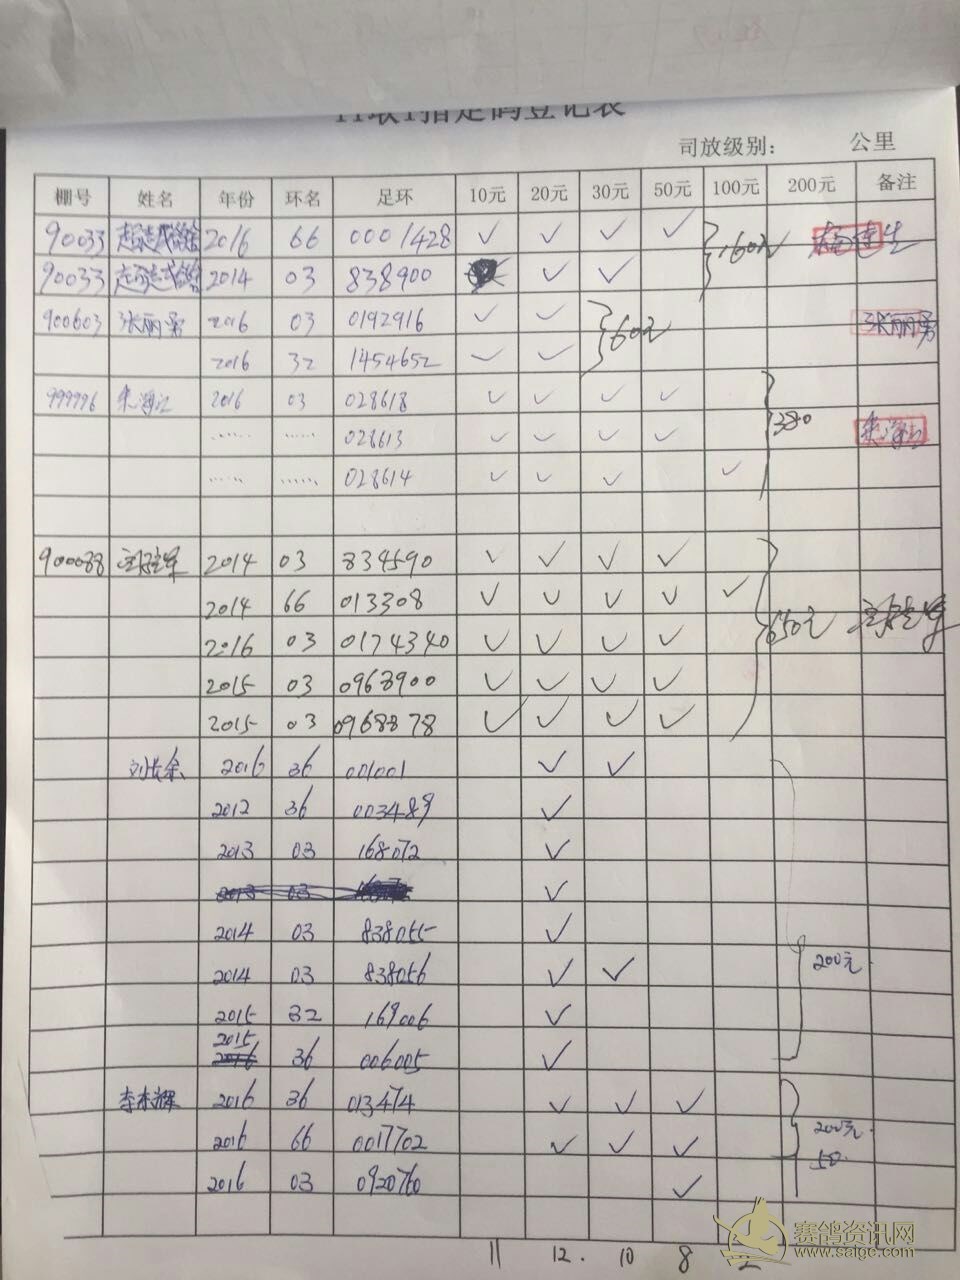 指定鸽登记表
司放级别： 公里
棚号 姓名 年份 环名 足环 10元 20元 30元 50元 100元 200元 备注
90033 2016 66 0001428 ✓ ✓ ✓ ✓ 160元
90033 2014 03 838900 ✓ ✓
900603 张丽勇 2016 03 0192916 ✓ ✓ 60元 张丽勇
2016 32 1454652 ✓ ✓
999996 2016 03 028618 ✓ ✓ ✓ ✓
...... ...... 028613 ✓ ✓ ✓ ✓ 380
...... ...... 028614 ✓ ✓ ✓ ✓
900088 2014 03 834590 ✓ ✓ ✓ ✓
2014 66 013308 ✓ ✓ ✓ ✓ ✓
2016 03 0174340 ✓ ✓ ✓ ✓ 650元
2015 03 0963900 ✓ ✓ ✓ ✓
2015 03 0968878 ✓ ✓ ✓ ✓
刘长余 2016 36 001001 ✓ ✓
2012 36 003489 ✓
2013 03 168072 ✓
2013 03 ✓
2014 03 838055 ✓
2014 03 838056 ✓ ✓ 200元
2015 32 169006 ✓
2015
2016 36 006005 ✓
李本辉 2016 36 013474 ✓ ✓ ✓
2016 66 0017702 ✓ ✓ ✓ 200元
50
2016 03 0920760 ✓
11 12 10 8 2
赛鸽资讯网
www.saigc.com